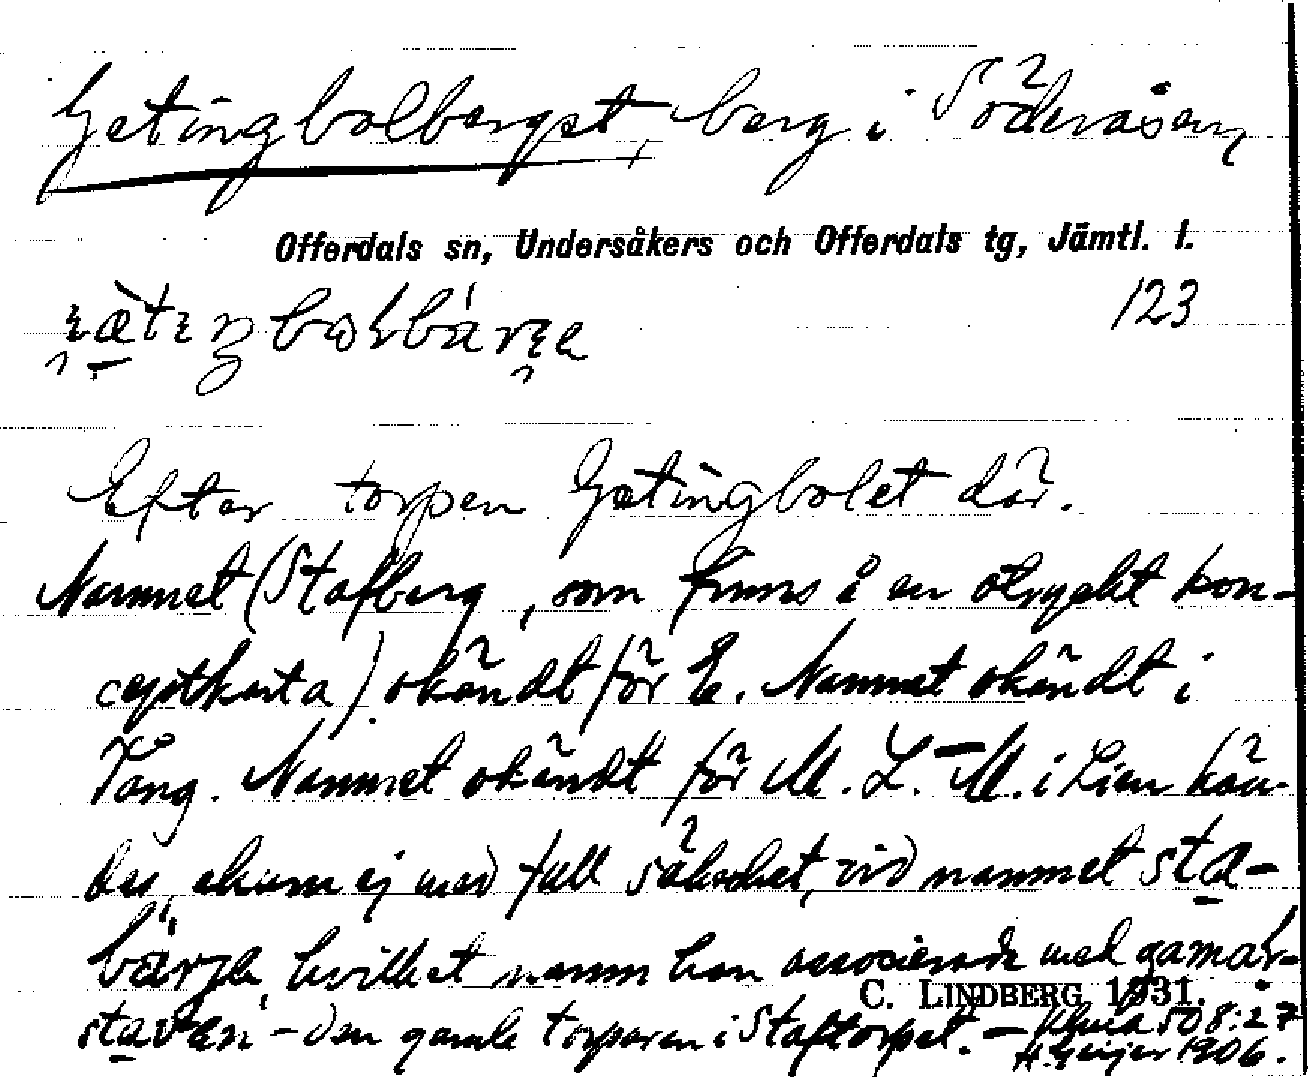 Getingbolberget, berg i Söderåsen,
Offerdals sn, Undersåkers och Offerdals tg, Jämtl. l.
123
Efter torpen Getingbolet där.
Namnet (Stafberg, som finns å en otryckt kon-
ceptkarta) okändt för E. Namnet okändt i
Tång. Namnet okändt för M. L. M. i Lien kän-
des, ehuru ej med full säkerhet, vid namnet sta-
bärje, hvilket namn han associerade med gamar-
C. LINDBERG 1931.
staven - den gamle torparen i Staftorpet. - 508:27
H. Geijer 1906.